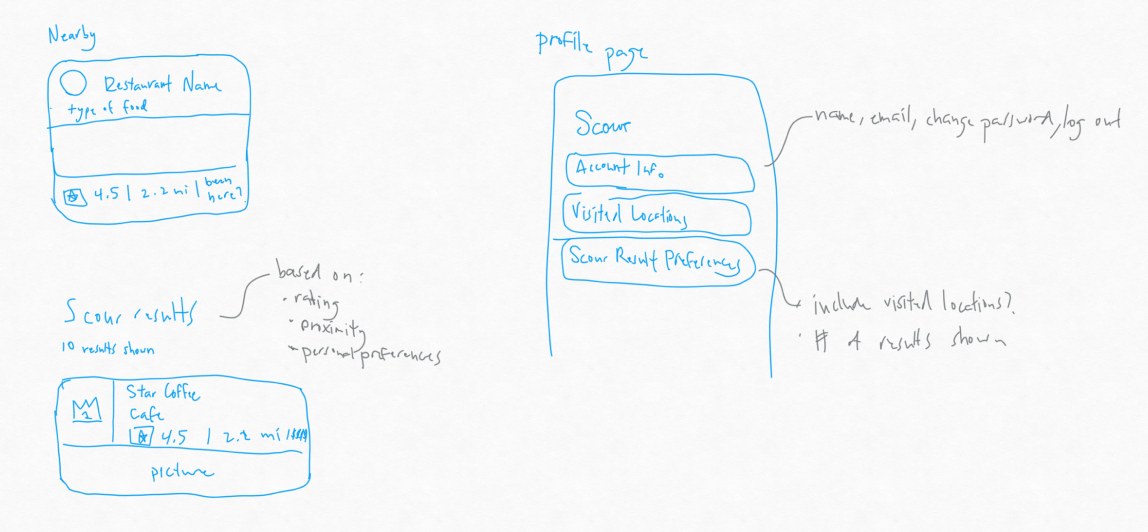 Nearby
Restaurant Name
type of food
4.5 | 2.2 mi | been here?
Scour results
10 results shown
based on:
· rating
· proximity
· personal preferences
2
Star Coffee
Cafe
4.5 | 2.2 mi |
picture
profile page
Scour
Account Info
Visited Locations
Scour Result Preferences
name, email, change password, log out
· include visited locations?
· # of results shown